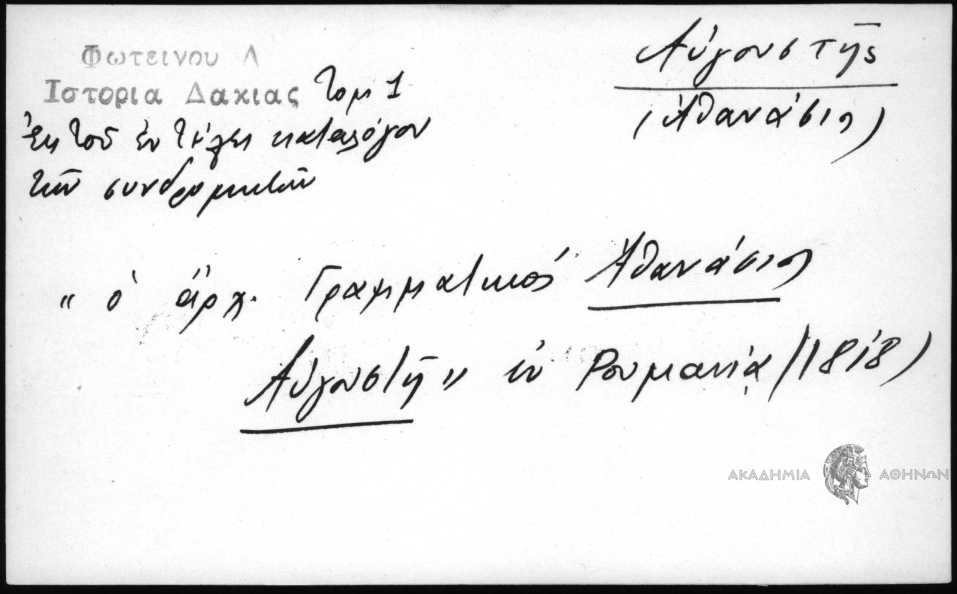 Φωτεινου Δ
Ιστορια Δακιας τομ 1
Ἐκ τοῦ ἐν τέλει καταλόγου
τῶν συνδρομητῶν
Αὐγουστῆς
(Ἀθανάσιος)
"ὁ ἄρχ. Γραμματικός Ἀθανάσιος
Αὐγουστῆ" ἐν Ρουμανίᾳ (1818)
ΑΚΑΔΗΜΙΑ ΑΘΗΝΩΝ